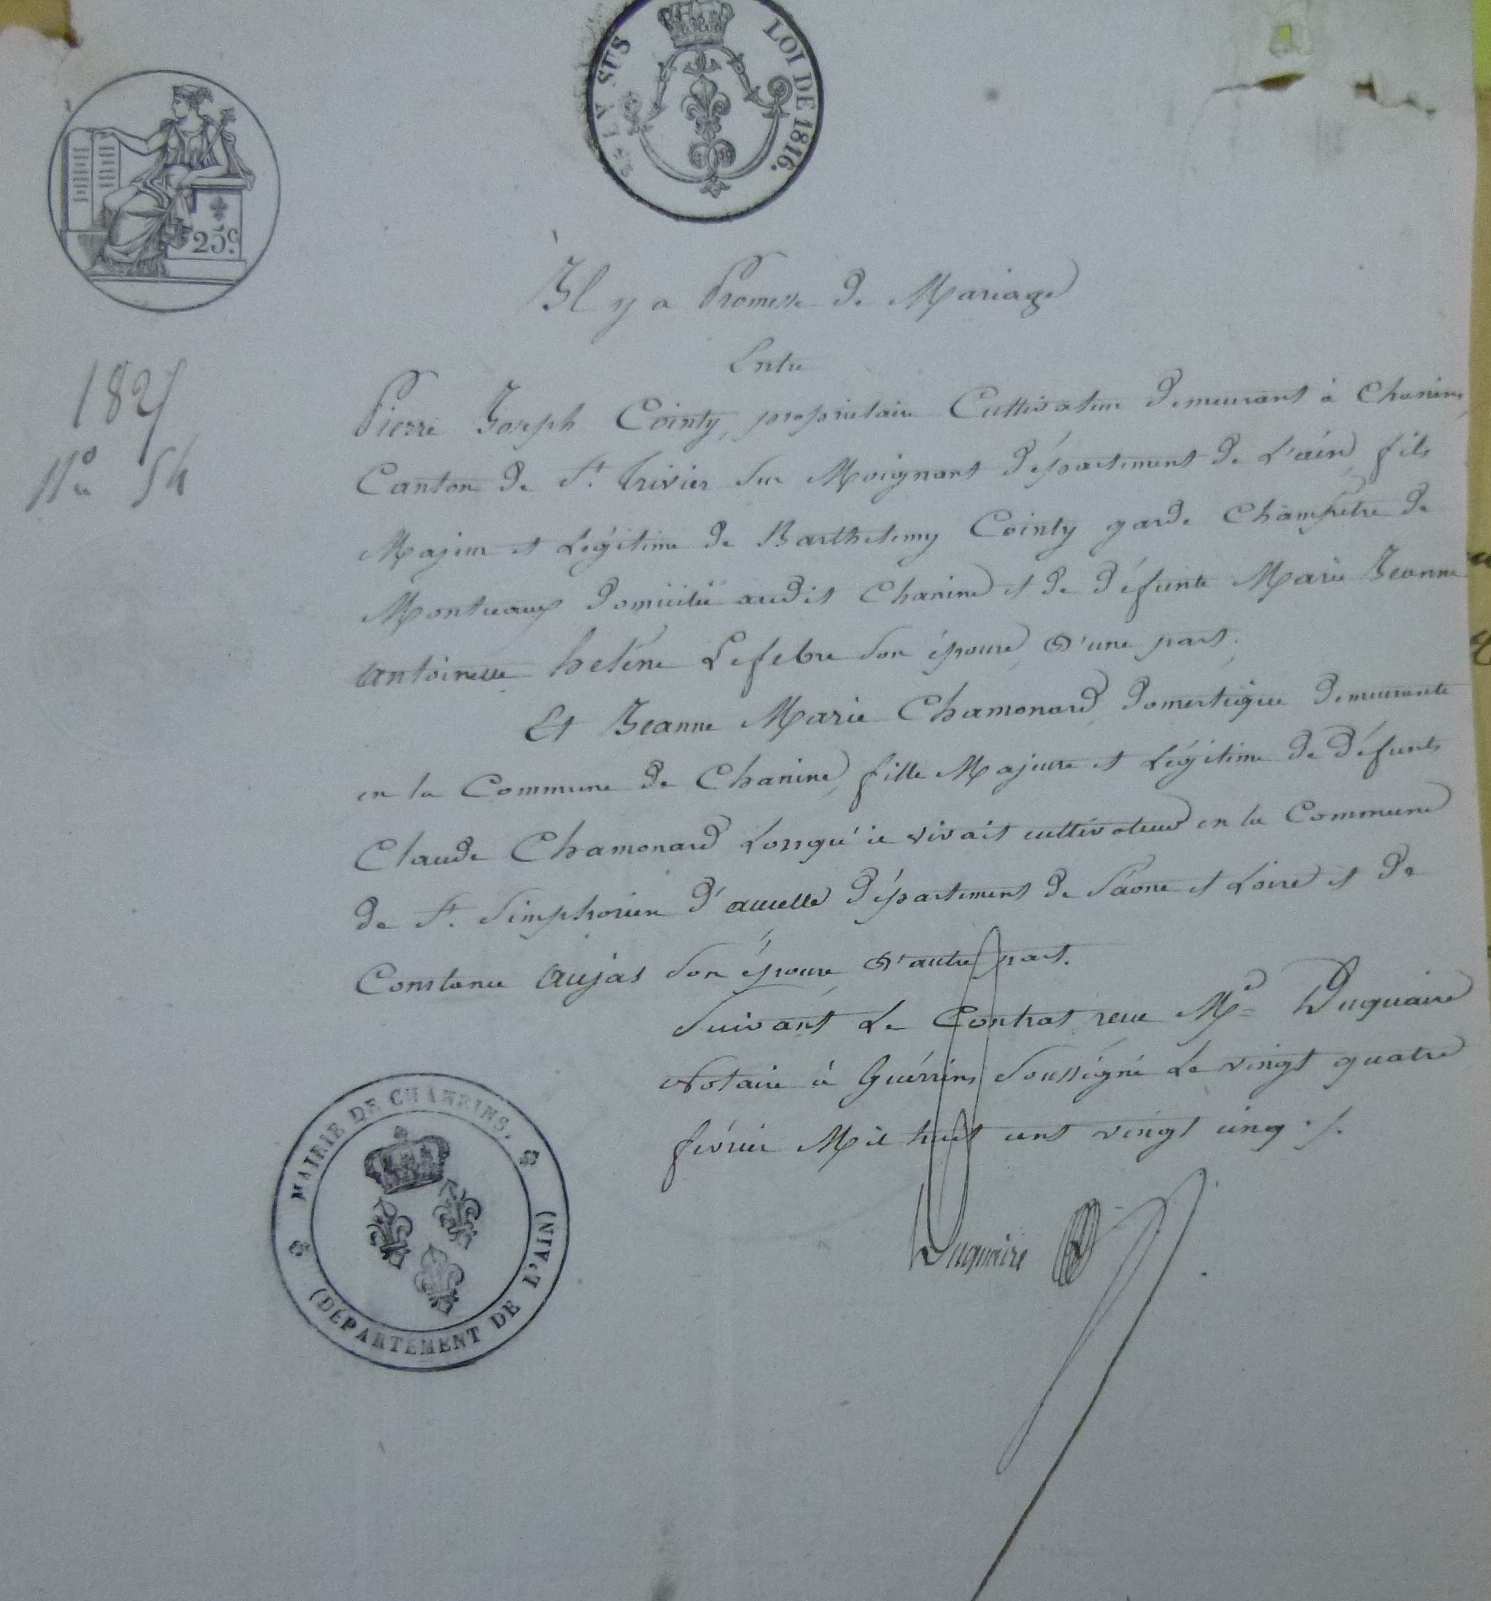 EN SUS
LOI DE 1816.
25c.
Il y a Promesse de Mariage
Entre
1825
No 54
Pierre Joseph Cointy, propriétaire Cultivateur demeurant à Chanins,
Canton de St. Trivier sur Moignant département de L'ain, fils
Majeur et Légitime de Barthelemy Cointy garde Champêtre de
Montceaux domicilié audit Chanins et de défunte Marie Jeanne
antoinette heléne Lefebre son épouse, D'une part.
Et Jeanne Marie Chamonard, domestique demeurante
en la Commune de Chanins, fille Majeure et Légitime de défunts
Claude Chamonard Lorsqu'il vivait cultivateur en la Commune
de St. Simphorien d'ancelle département de Saone et Loire et de
Constance aujas son épouse, D'autre part.
Suivant Le Contrat reçu Me Duquaire
Notaire à Guérrins soussigné Le vingt quatre
février Mil huit cent vingt cinq ./.
Duquaire
MAIRIE DE CHANEINS.
(DÉPARTEMENT DE L'AIN)